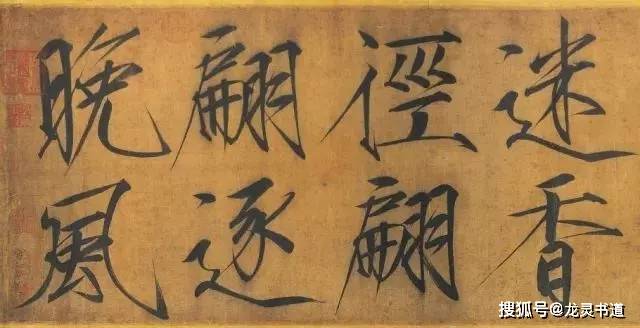 迷香
徑翩
翩逐
晚風
搜狐号@龙灵书道